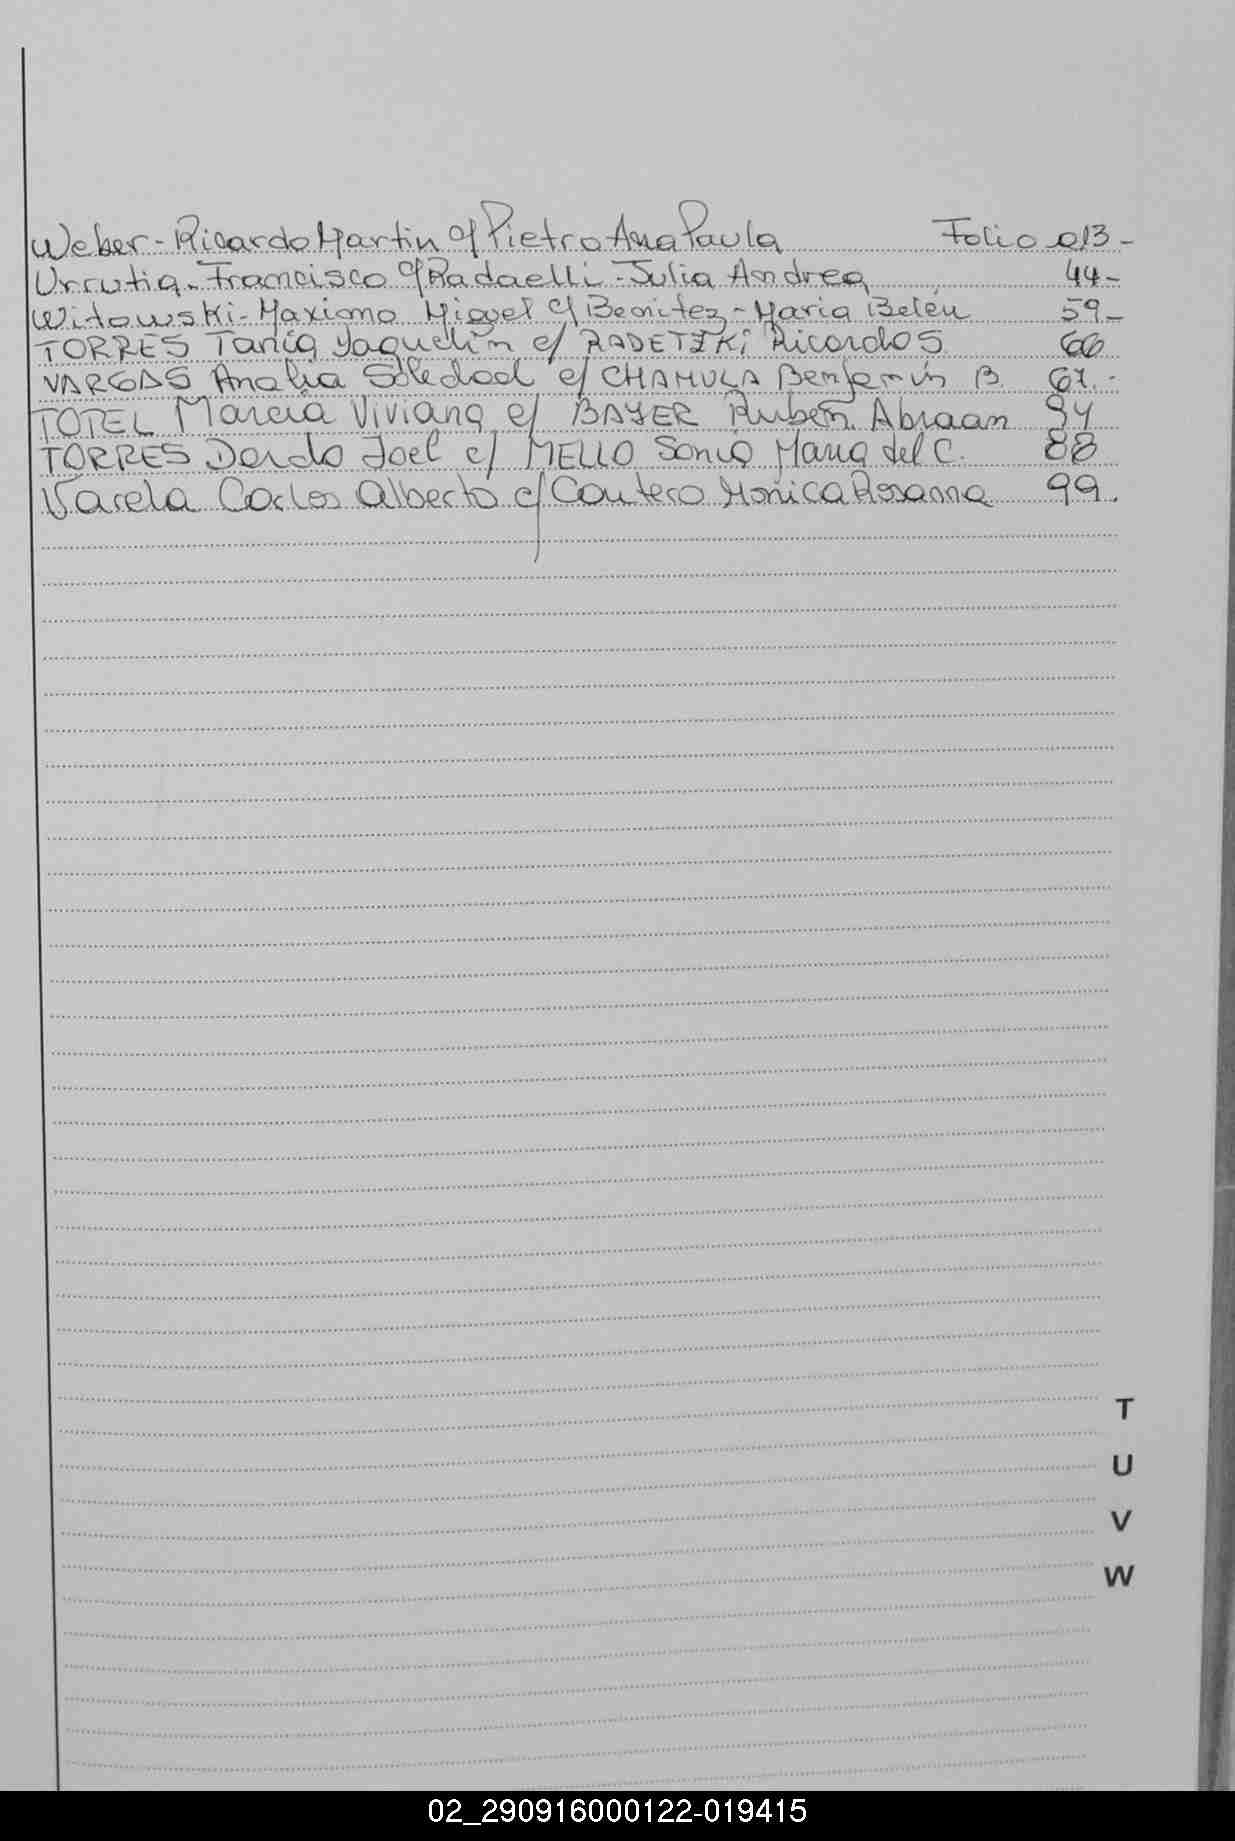 Weber - Ricardo Martin c/ Pietro Ana Paula Folio 013 -
Urrutia - Francisco c/ Radaelli - Julia Andrea 44 -
Witowski - Maximo Miguel c/ Benitez - Maria Belén 59 -
TORRES Tania Yaquelin c/ RADETZKi Ricardo S. 66
VARGAS Analia Soledad c/ CHAMULA Benjamin B. 67. -
TOTEL Marcia Viviana c/ BAYER Ruben Abraan
TORRES Dardo Joel c/ MELLO Sonia Maria del C. 88
Varela Carlos Alberto c/ Coutero Monica Rosanna 99.
T
U
V
W
02_290916000122-019415